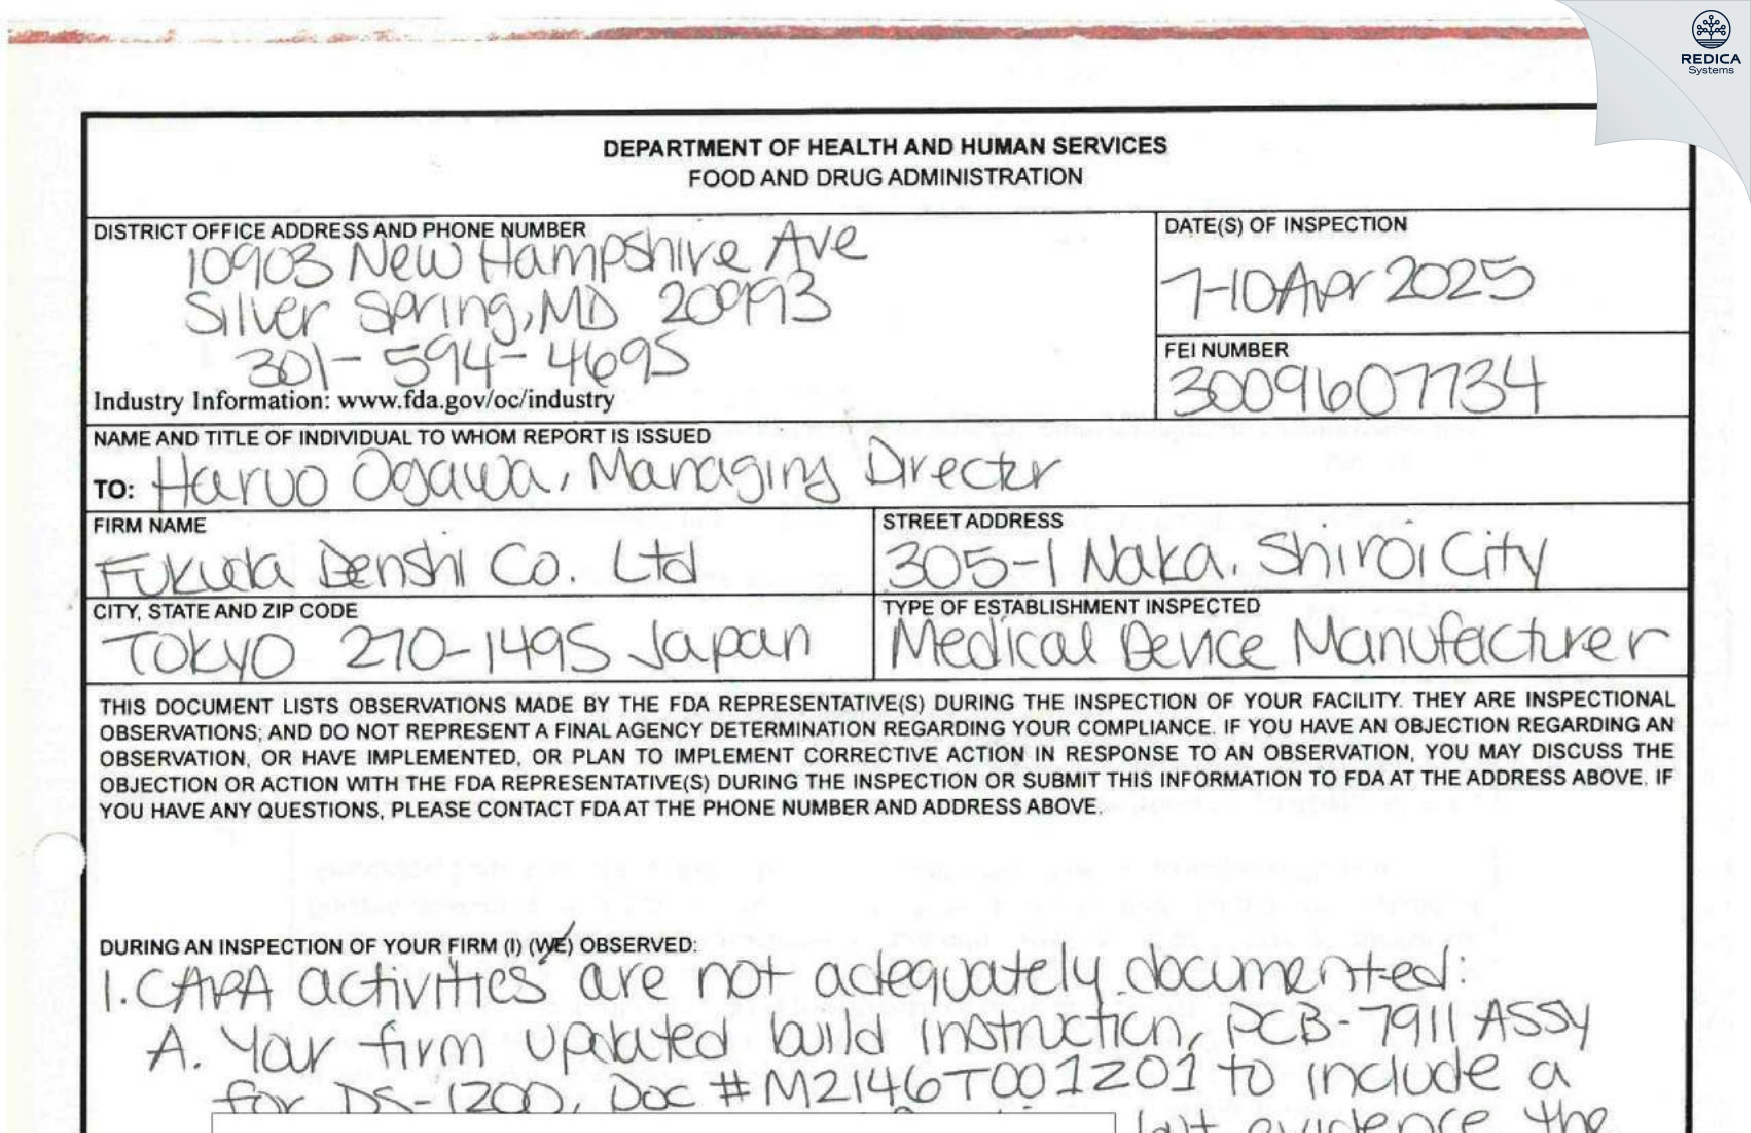 REDICA
Systems
DEPARTMENT OF HEALTH AND HUMAN SERVICES
FOOD AND DRUG ADMINISTRATION
DISTRICT OFFICE ADDRESS AND PHONE NUMBER
10903 New Hampshire Ave
Silver Spring, MD 20993
301-594-4695
Industry Information: www.fda.gov/oc/industry
DATE(S) OF INSPECTION
7-10 Apr 2025
FEI NUMBER
3009607734
NAME AND TITLE OF INDIVIDUAL TO WHOM REPORT IS ISSUED
TO: Haruo Ogawa, Managing Director
FIRM NAME
Fukuda Denshi Co. Ltd
STREET ADDRESS
305-1 Naka, Shiroi City
CITY, STATE AND ZIP CODE
Tokyo 270-1495 Japan
TYPE OF ESTABLISHMENT INSPECTED
Medical Device Manufacturer
THIS DOCUMENT LISTS OBSERVATIONS MADE BY THE FDA REPRESENTATIVE(S) DURING THE INSPECTION OF YOUR FACILITY. THEY ARE INSPECTIONAL
OBSERVATIONS; AND DO NOT REPRESENT A FINAL AGENCY DETERMINATION REGARDING YOUR COMPLIANCE. IF YOU HAVE AN OBJECTION REGARDING AN
OBSERVATION, OR HAVE IMPLEMENTED, OR PLAN TO IMPLEMENT CORRECTIVE ACTION IN RESPONSE TO AN OBSERVATION, YOU MAY DISCUSS THE
OBJECTION OR ACTION WITH THE FDA REPRESENTATIVE(S) DURING THE INSPECTION OR SUBMIT THIS INFORMATION TO FDA AT THE ADDRESS ABOVE. IF
YOU HAVE ANY QUESTIONS, PLEASE CONTACT FDA AT THE PHONE NUMBER AND ADDRESS ABOVE.
DURING AN INSPECTION OF YOUR FIRM (I) (WE) OBSERVED:
1. CAPA activities are not adequately documented:
A. Your firm updated build instruction, PCB-7911 ASSY
for DS-1200, Doc #M2146T001201 to include a
but evidence the